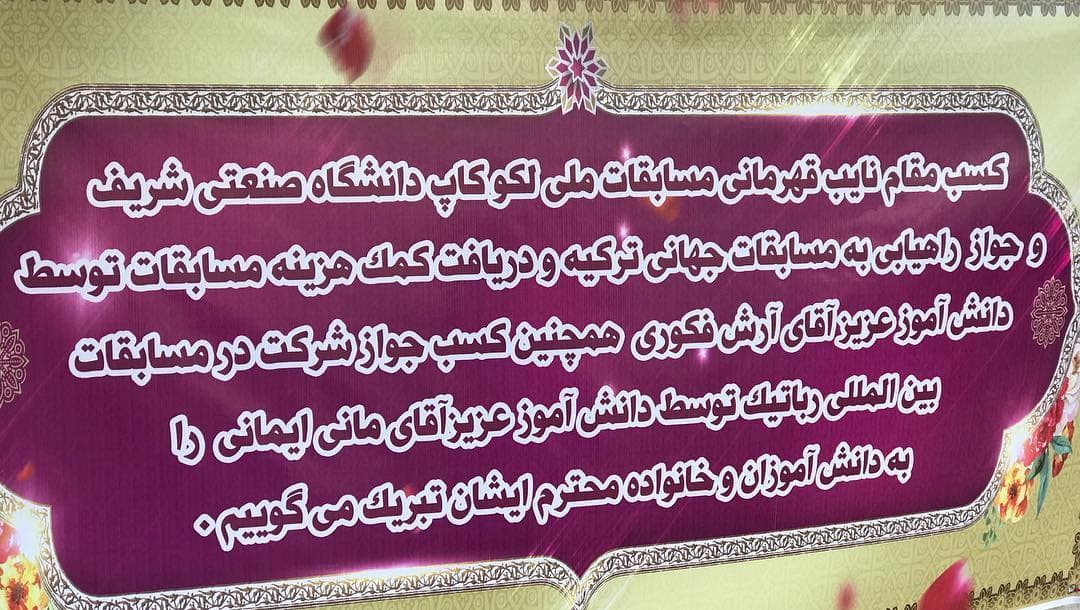 کسب مقام نایب قهرمانی مسابقات ملی لکو کاپ دانشگاه صنعتی شریف
و جواز راهیابی به مسابقات جهانی ترکیه و دریافت کمك هزینه مسابقات توسط
دانش آموز عزیز آقای آرش فکوری همچنین کسب جواز شرکت در مسابقات
بین المللی رباتیك توسط دانش آموز عزیز آقای مانی ایمانی را
به دانش آموزان و خانواده محترم ایشان تبریك می گوییم .